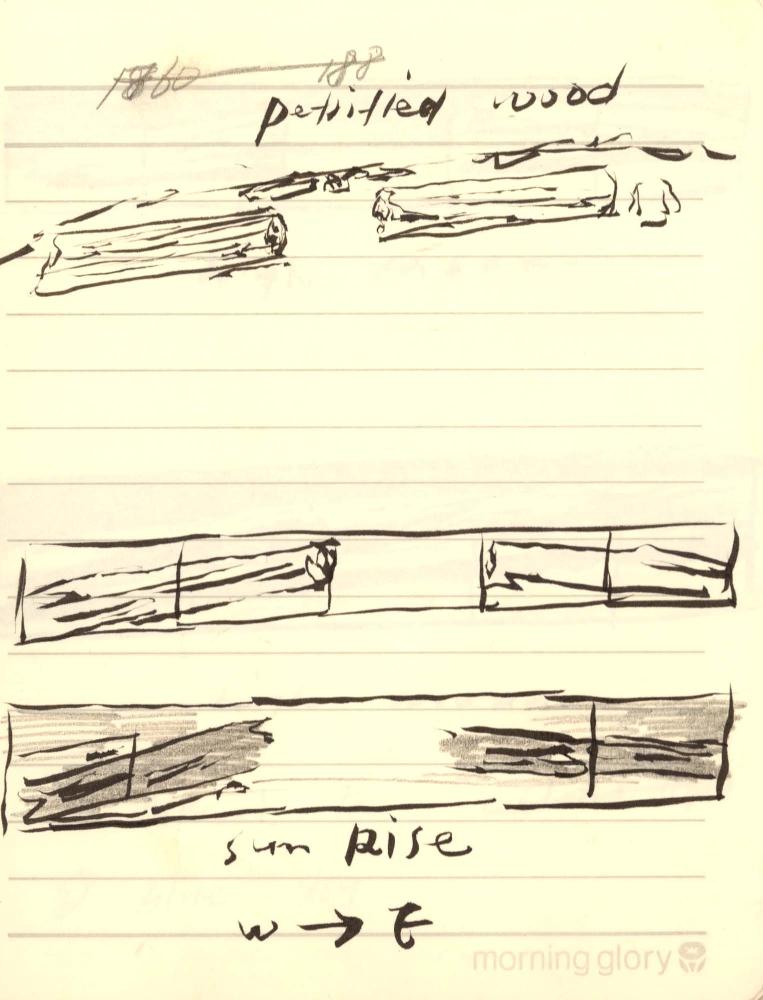 1860 — 188
petrified wood
sun Rise
W → E
morning glory